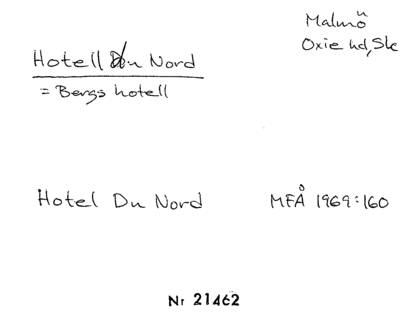 Malmö
Oxie hd, Sk
Hotell Du Nord
= Bergs hotell
Hotel Du Nord
MFÅ 1969:160
Nr 21462